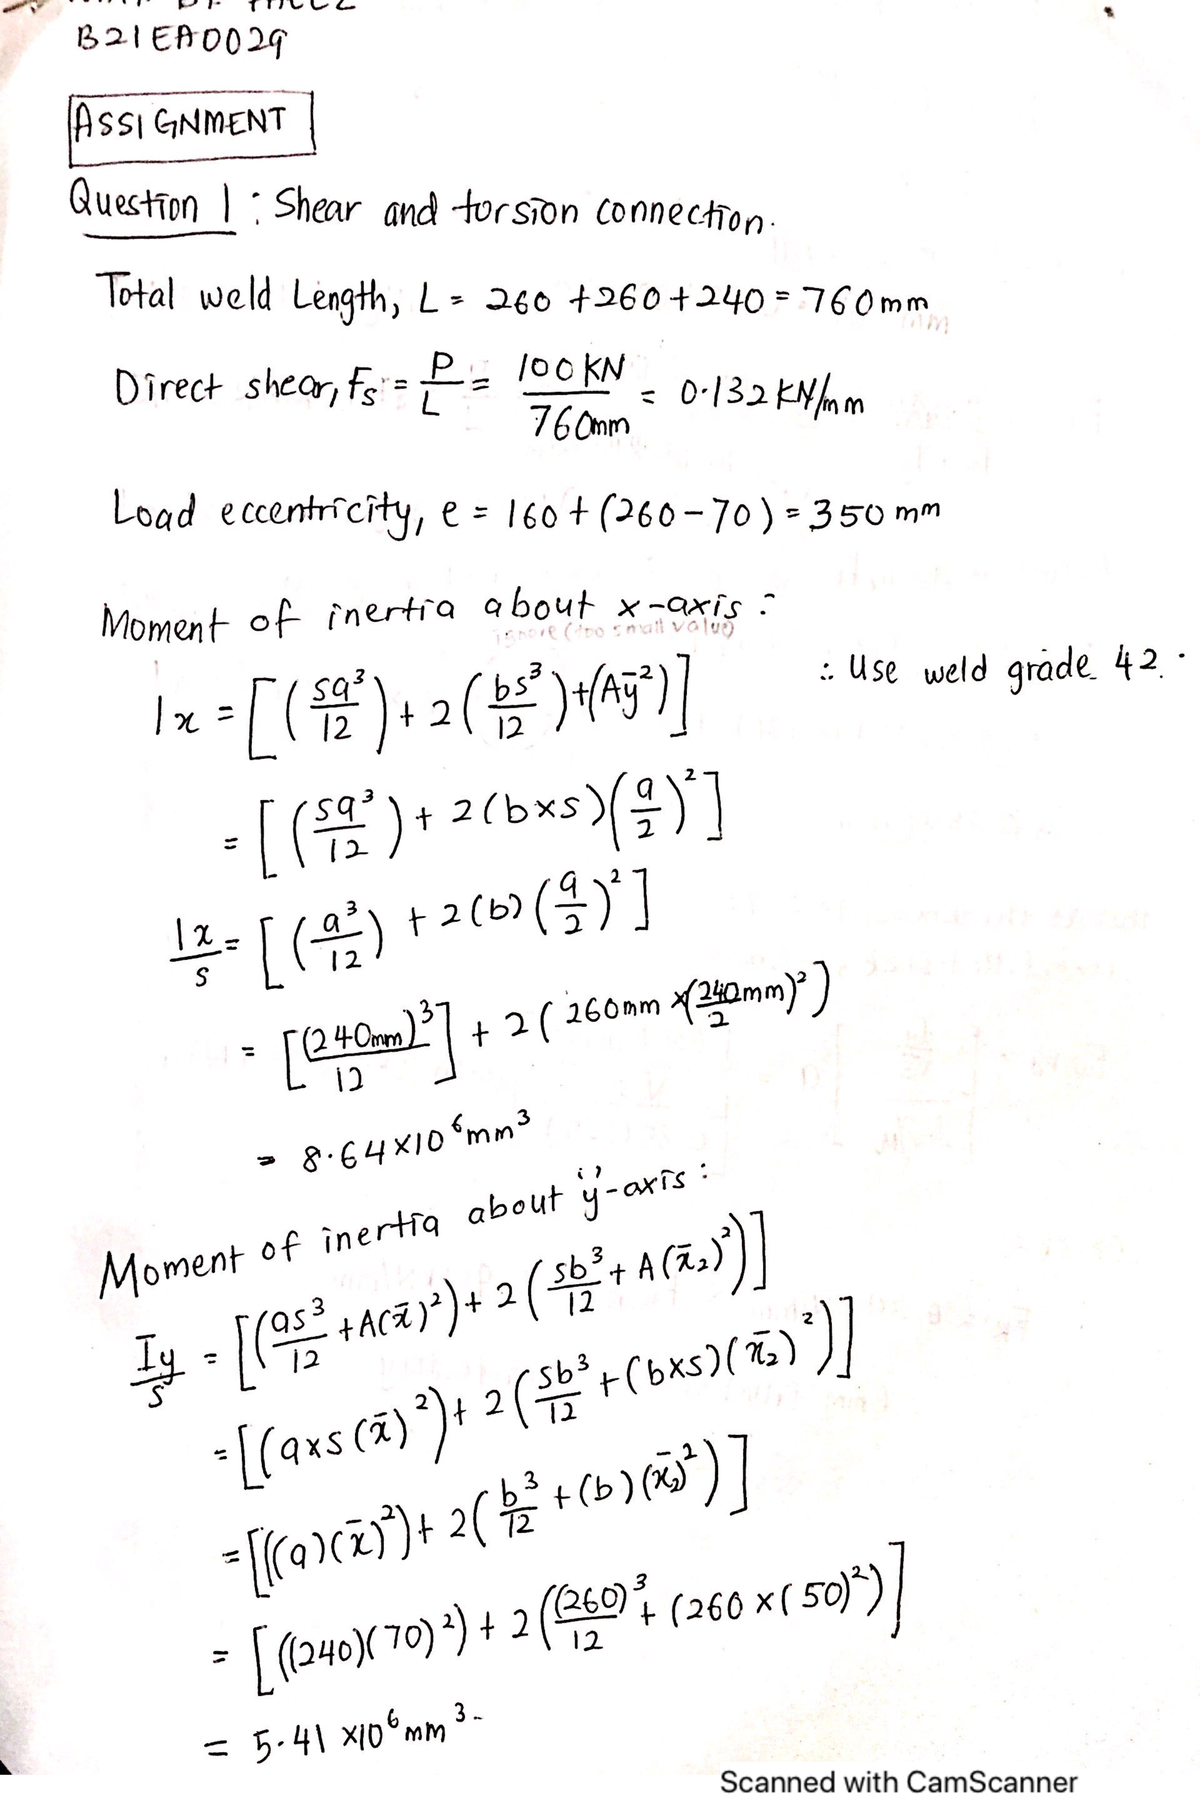 B21EA0029
ASSIGNMENT
Question 1 : Shear and torsion connection.
Total weld Length, L = 260 + 260 + 240 = 760mm
Direct shear, Fs = P/L = 100KN/760mm = 0.132 KN/mm
Load eccentricity, e = 160 + (260 - 70) = 350 mm
Moment of inertia about x-axis :
ignore (too small value)
Ix = [(sa³/12) + 2(bs³/12) + (Aȳ²)]
∴ Use weld grade 42.
= [(sa³/12) + 2(b×s)(a/2)²]
Ix/s = [(a³/12) + 2(b)(a/2)²]
= [(240mm)³/12] + 2(260mm × (240mm/2)²)
= 8.64×10⁶mm³
Moment of inertia about y-axis :
Iy/s = [(as³/12 + A(x̄)²) + 2(sb³/12 + A(x̄₂)²)]
= [(a×s(x̄)²) + 2(sb³/12 + (b×s)(x̄₂)²)]
= [((a)(x̄)²) + 2(b³/12 + (b)(x̄₂)²)]
= [((240)(70)²) + 2((260)³/12 + (260 × (50)²)]
= 5.41 ×10⁶ mm³.
Scanned with CamScanner